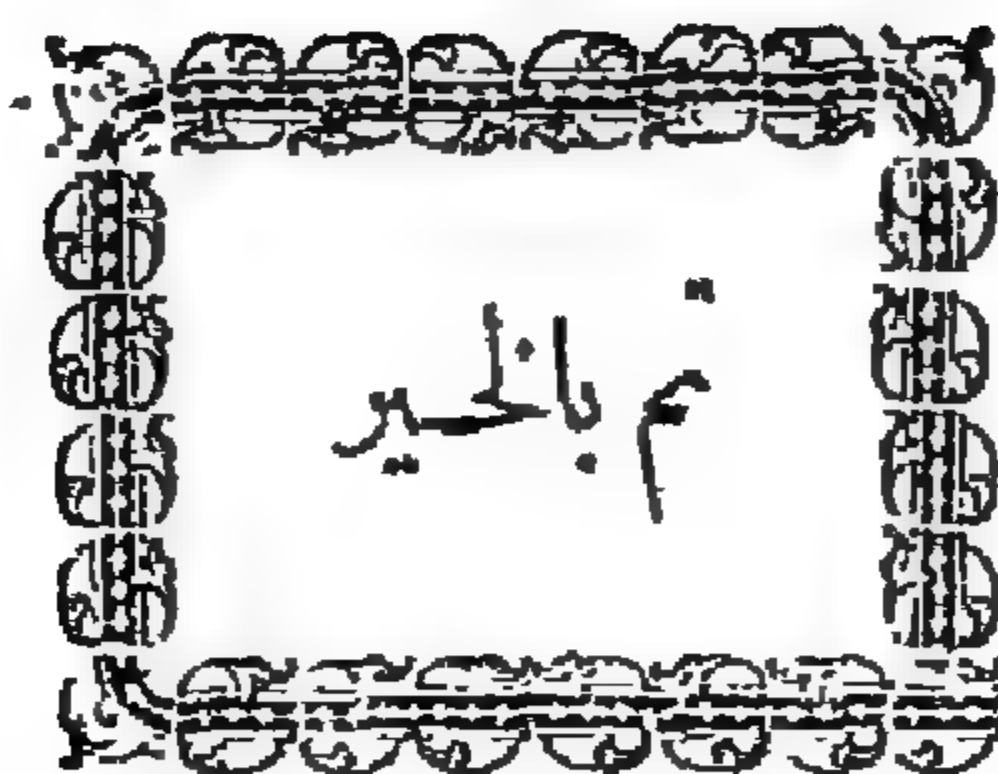 تم بالخير